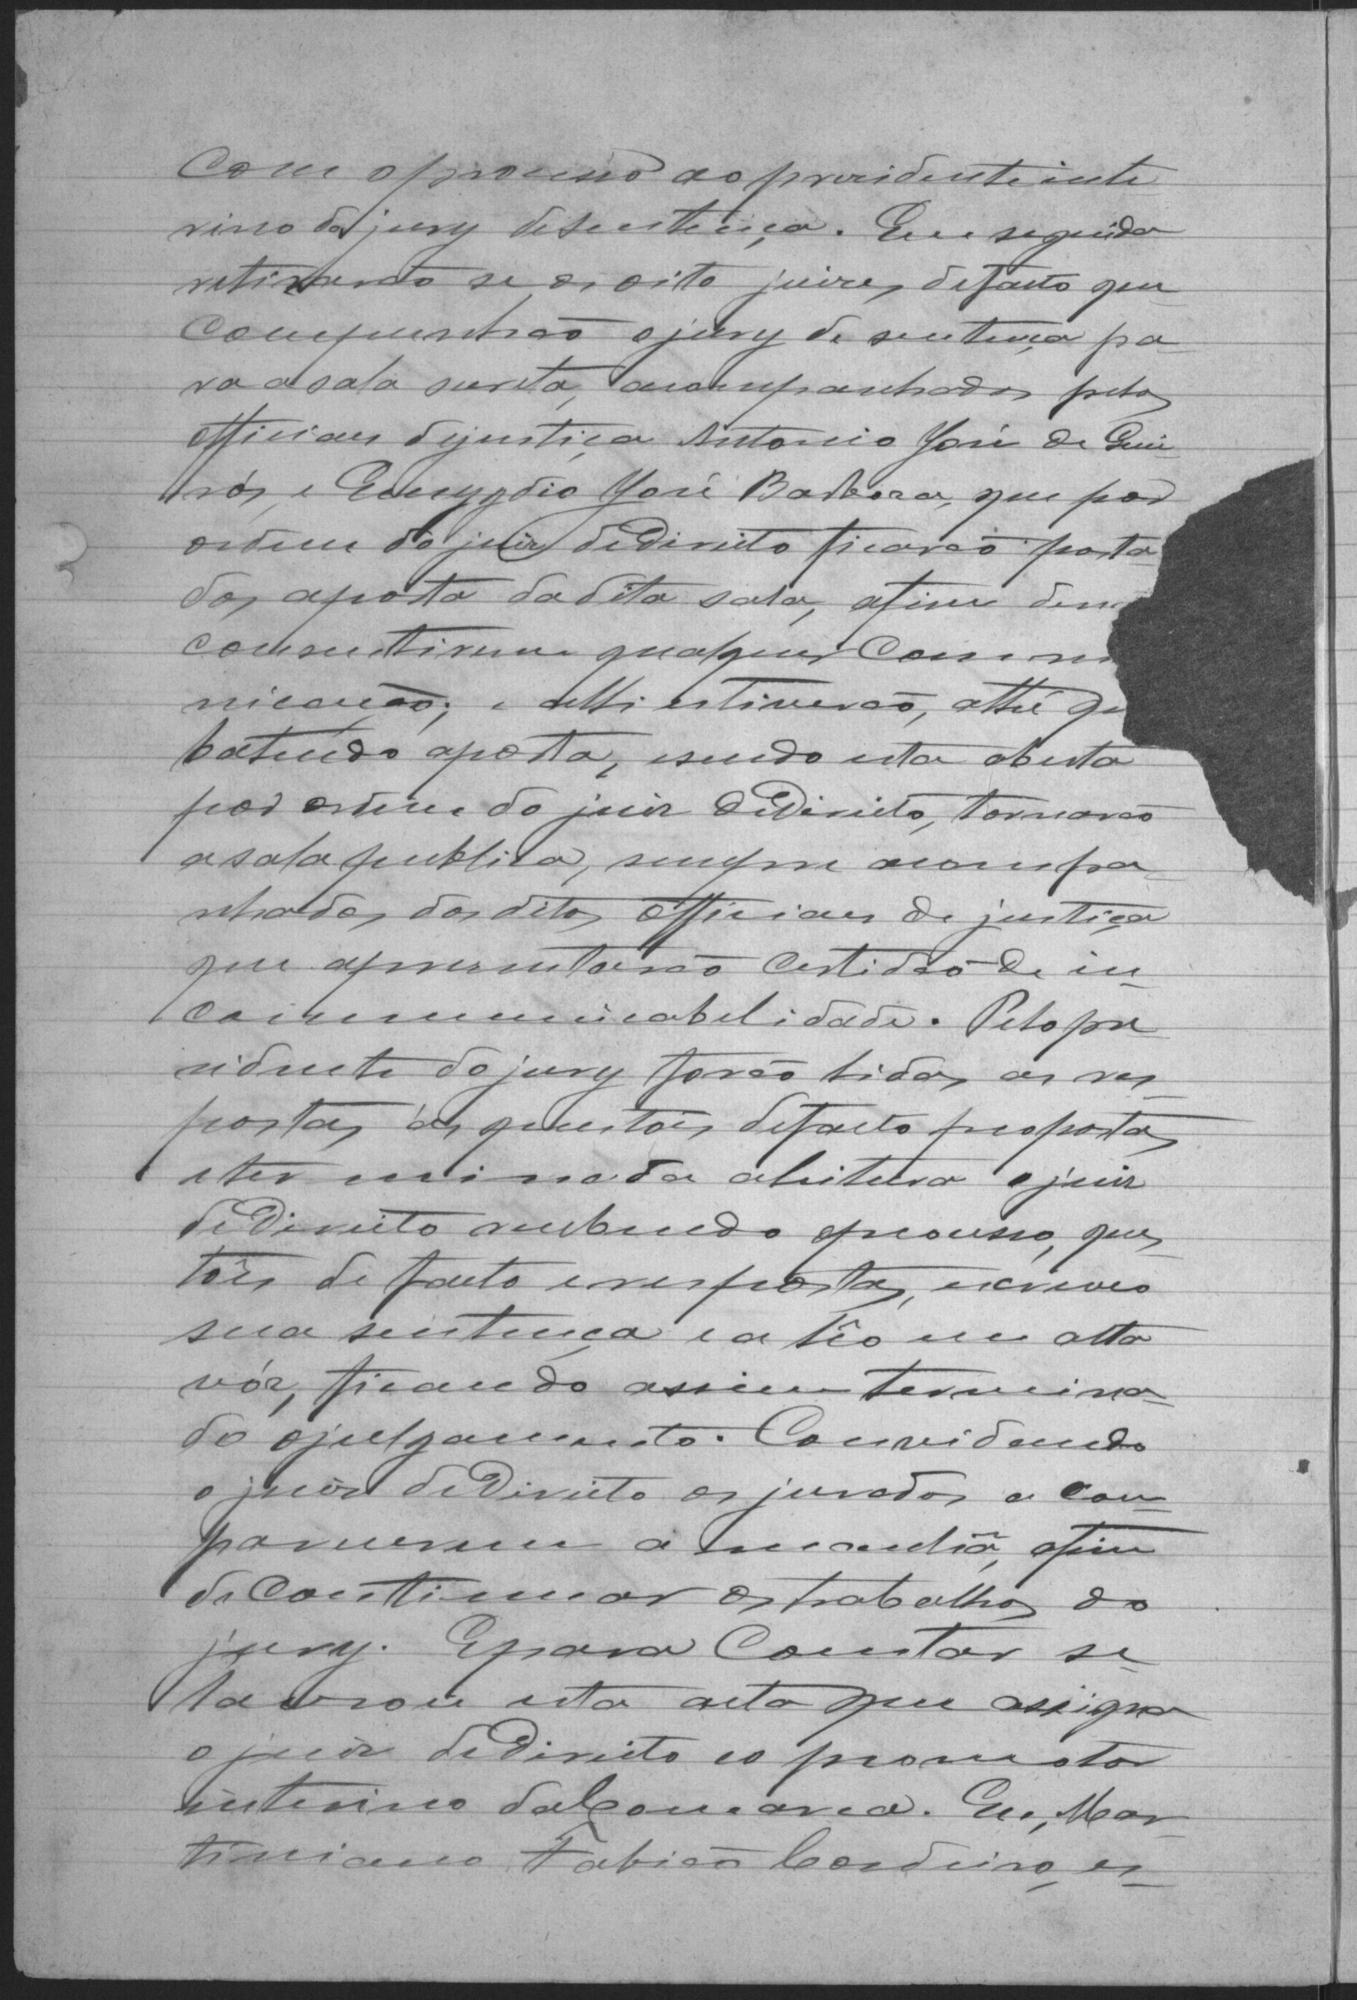 com o processo ao presidente inte
rino do jury de sentença. Em seguida
retirarão se os oito juizes de facto que
compunhão o jury de sentença pa-
ra a sala secreta, acompanhados pelos
officiaes de justiça Antonio José de
e Emygdio José Barbosa, que por
ordem do juiz de Direito ficarão posta-
dos a porta da dita sala, afim de n
consentirem qualquer commu
nicação; e alli estiverão, athé qu
batendo a porta, e sendo esta aberta
por ordem do juiz de Direito, tornarão
a sala publica, sempre acompa-
nhados dos ditos officiaes de justiça
que apresentarão certidão de in-
communicabelidade. Pelo pre
sidente do jury forão lidas as res-
postas ás questões de facto propostas
e terminada a leitura o juiz
de Direito recebendo o processo, ques-
tões de facto e respostas, escreveo
sua sentença e a lêo em alta
vóz, ficando assim termina-
do o julgamento. Convidando
o juiz de Direito os jurados a com-
parecerem a manhã, afim
de continuar os trabalhos do
jury. E para constar se
lavrou esta acta que assigna
o juiz de Direito e o promotor
interino da Comarca. Eu, Mar-
tiniano Fabião Cordeiro, es-